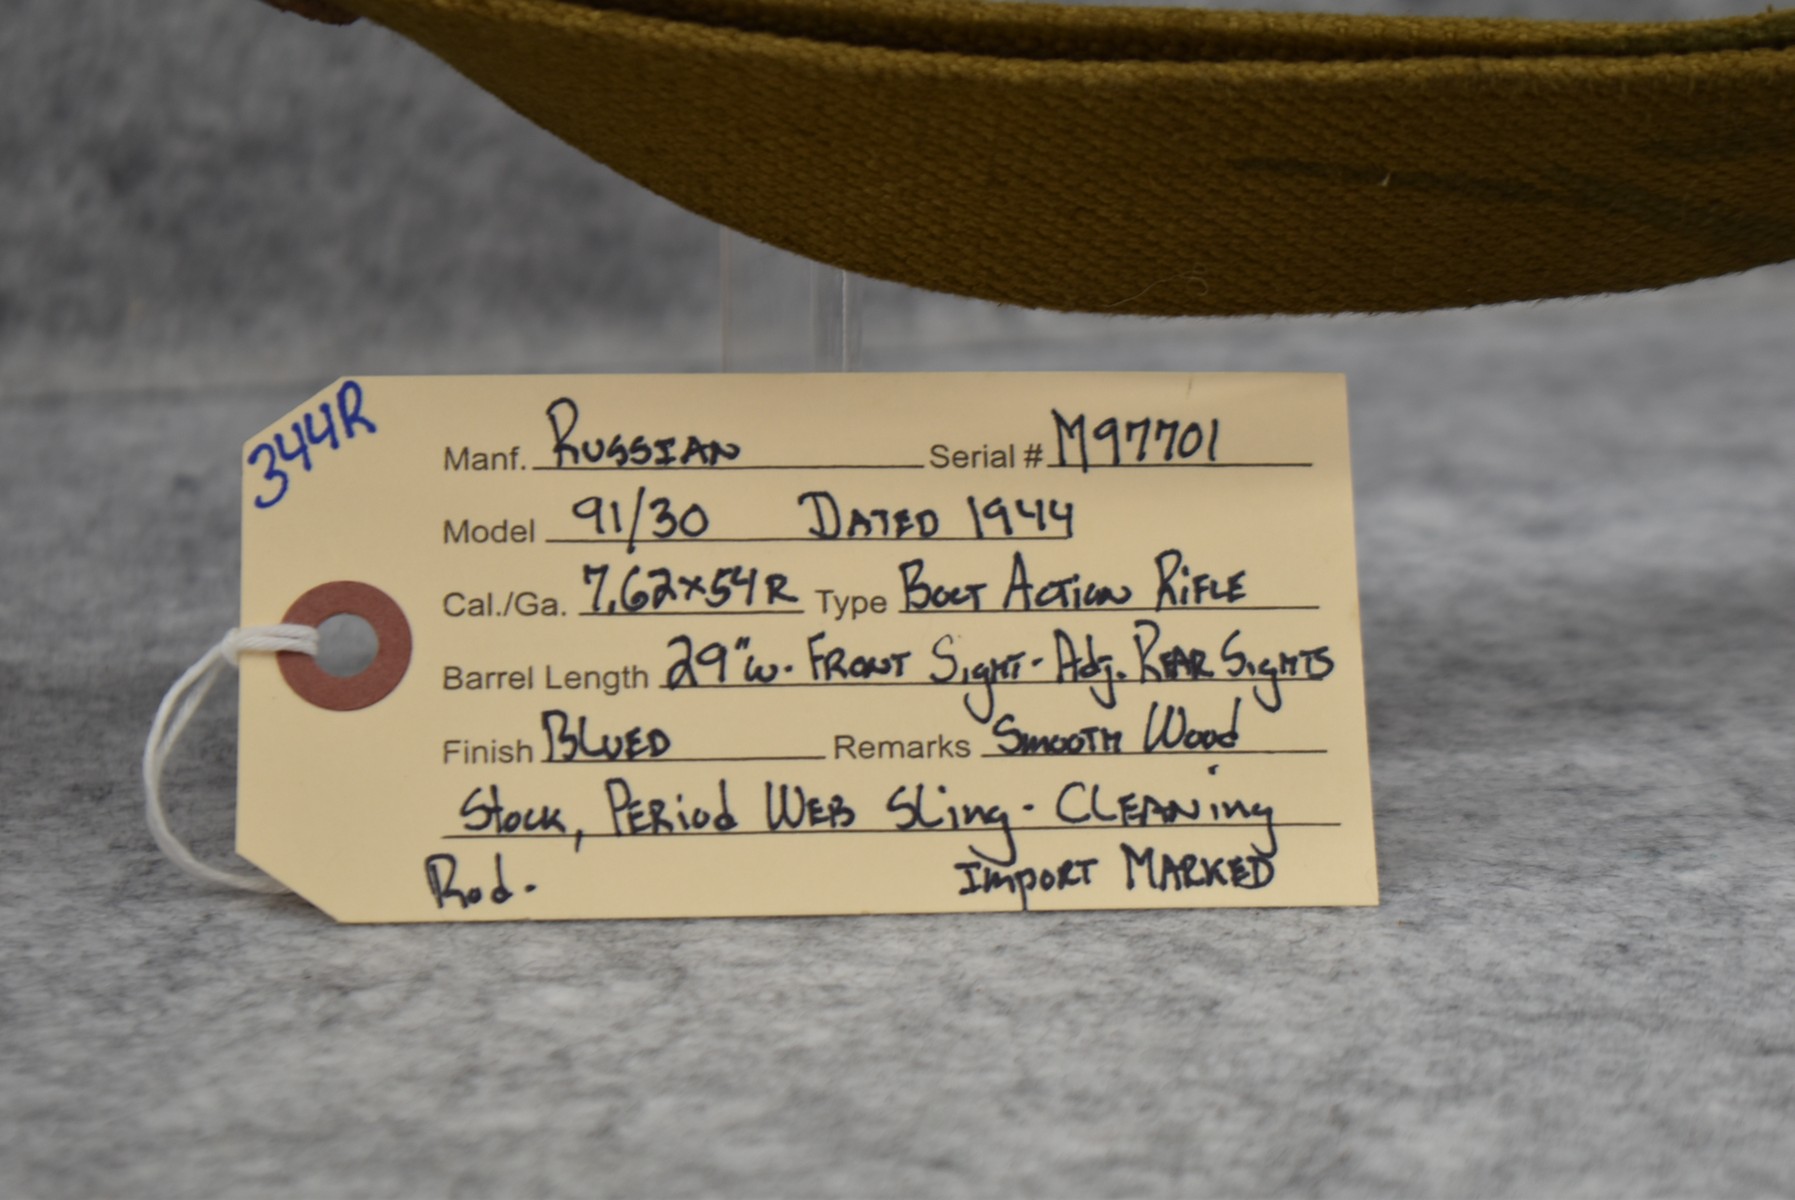 344R
Manf. Russian Serial # M97701
Model 91/30 Dated 1944
Cal./Ga. 7.62x54R Type Bolt Action Rifle
Barrel Length 29" w. Front Sight - Adj. Rear Sights
Finish Blued Remarks Smooth Wood
Stock, Period Web Sling - Cleaning
Rod. Import Marked